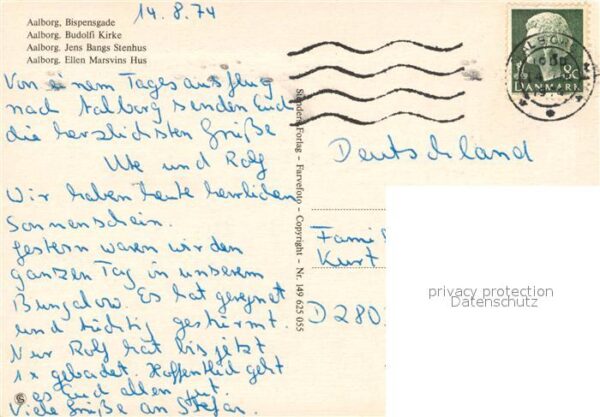 14.8.74
Aalborg, Bispensgade
Aalborg. Budolfi Kirke
Aalborg. Jens Bangs Stenhus
Aalborg. Ellen Marsvins Hus
Von einem Tagesausflug
nach Aalborg senden Euch
die herzlichsten Grüße
Ute und Rolf
Wir haben heute herrlichen
Sonnenschein.
Gestern waren wir den
ganzen Tag in unserem
Bungalow. Es hat geregnet
und tüchtig gestürmt.
Nur Rolf hat bis jetzt
1x gebadet. Hoffentlich geht
es Euch allen gut.
Viele Grüße an Stefan.
Stenders Forlag - Farvefoto - Copyright - Nr. 149 625 055
DANMARK
Deutschland
Fami
Kurt
D 280
privacy protection
Datenschutz